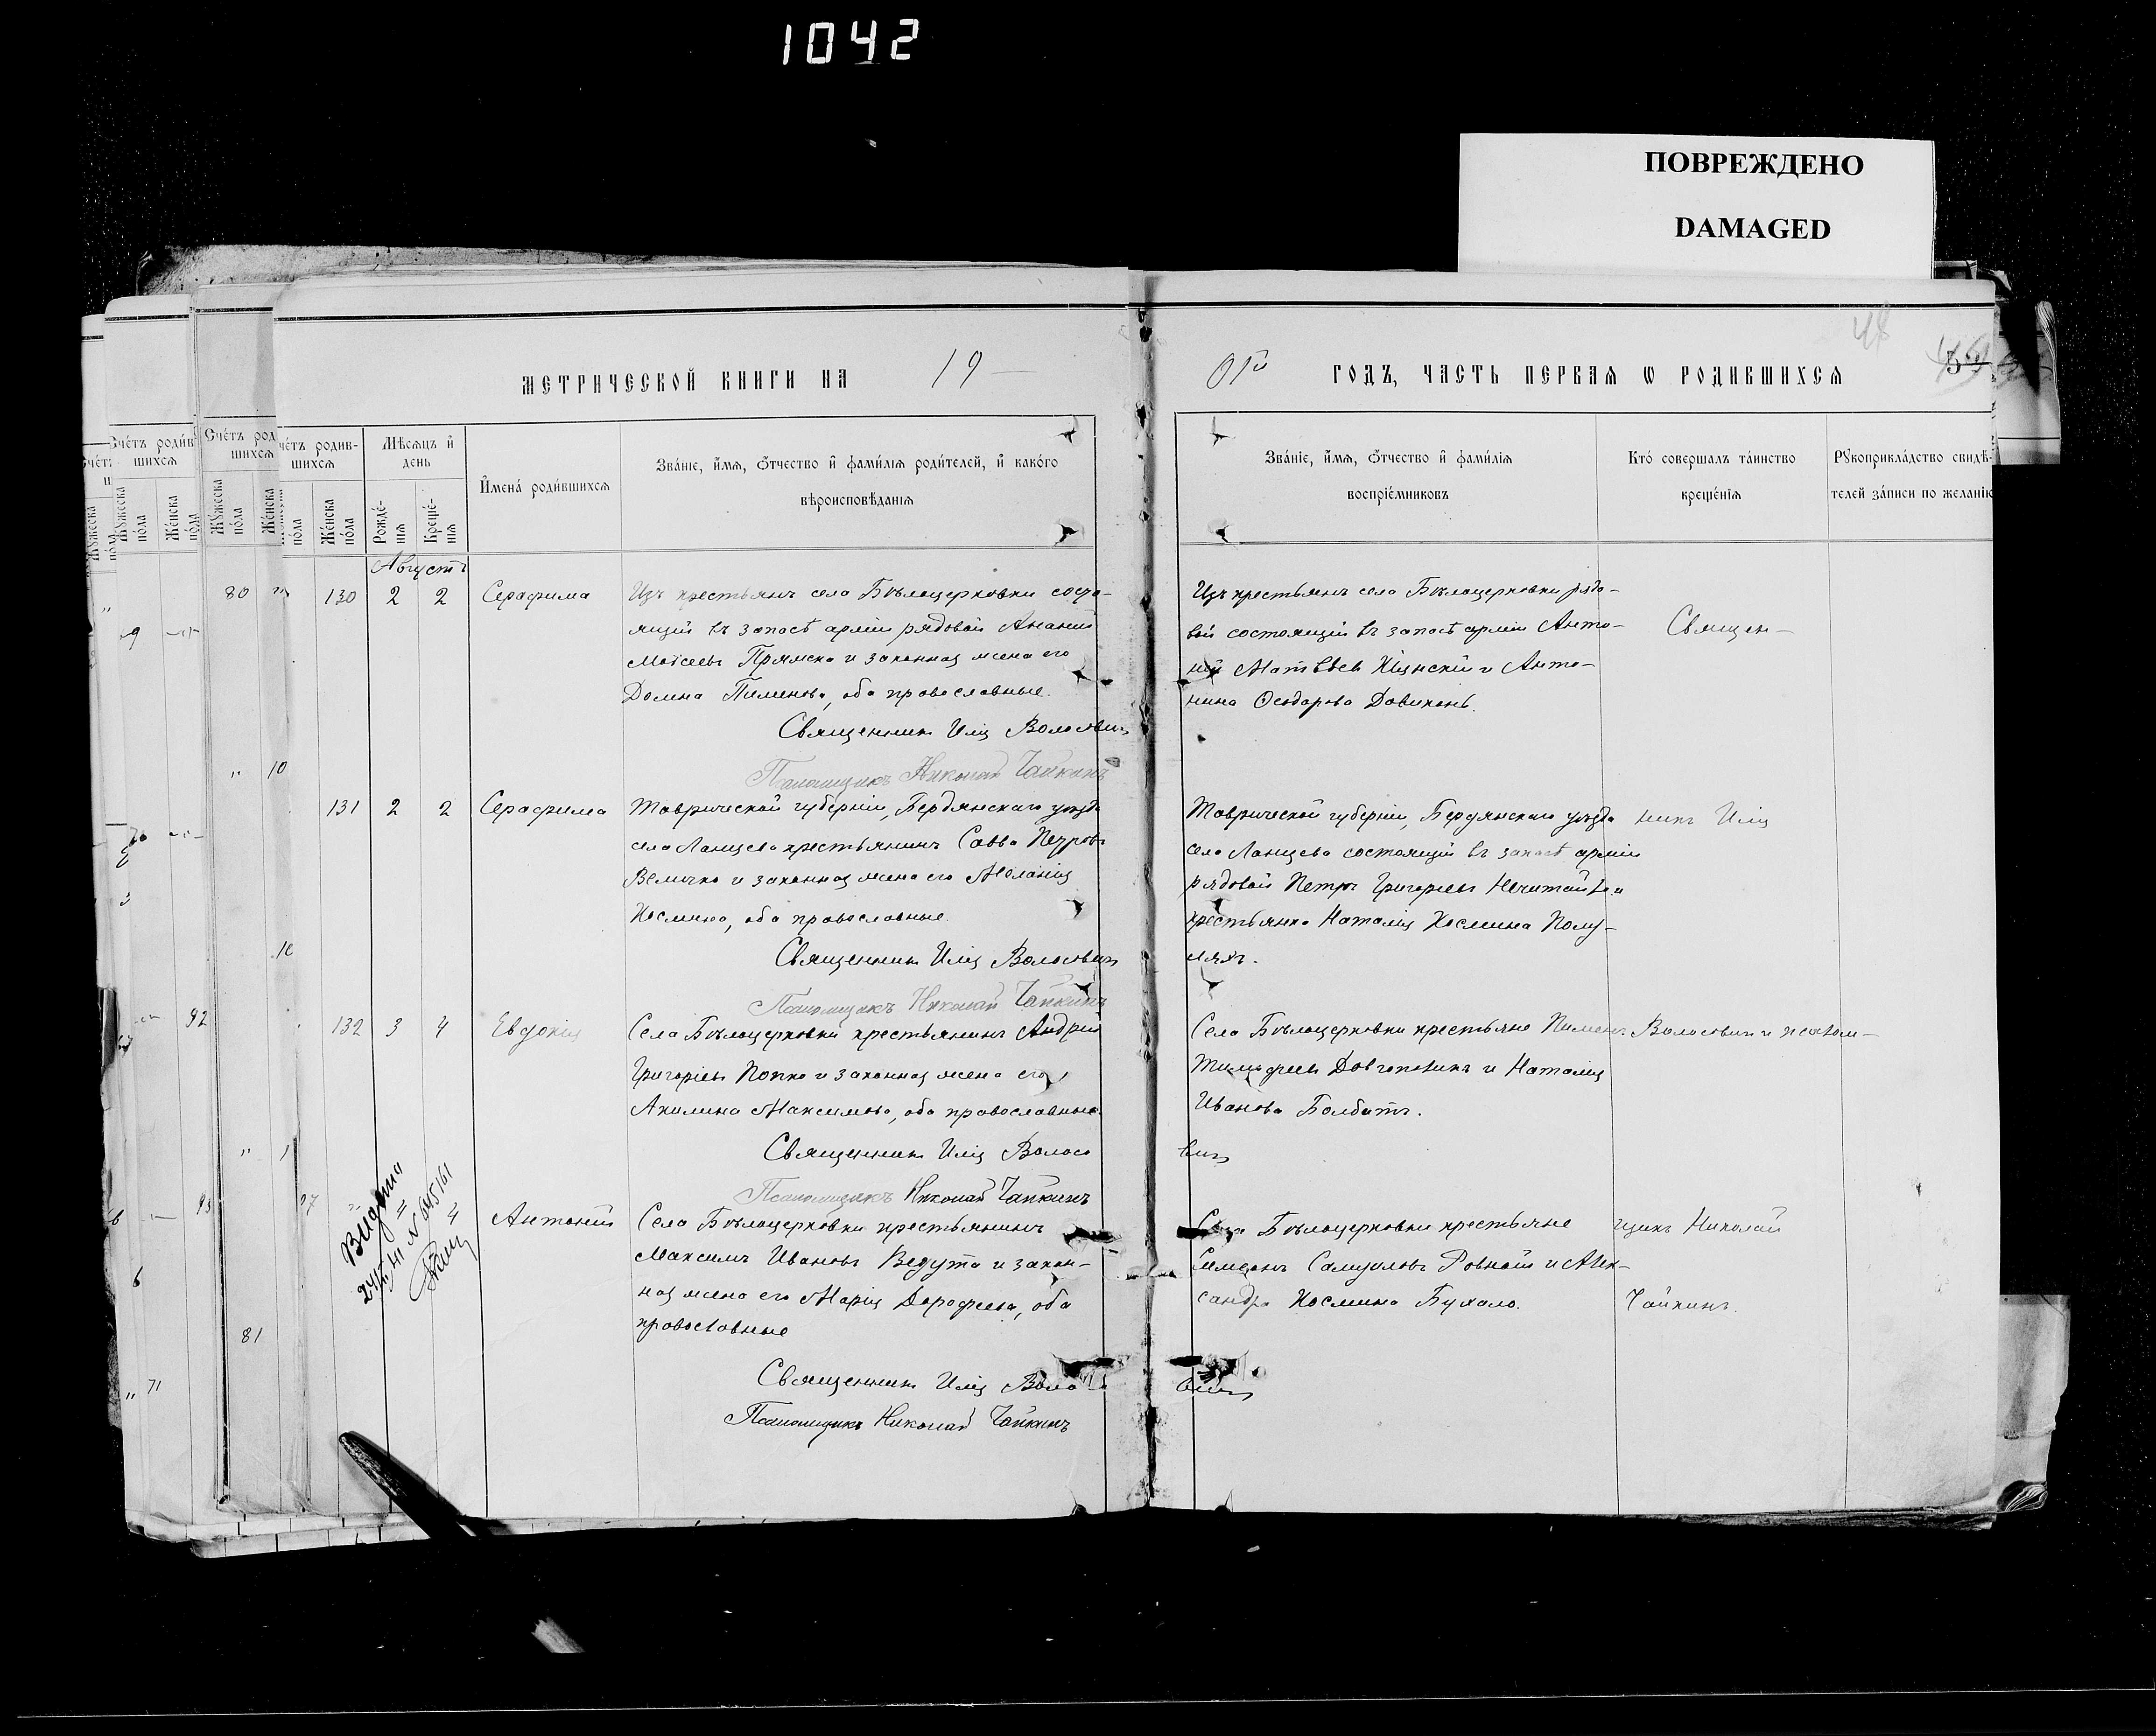 1042
ПОВРЕЖДЕНО
DAMAGED
48
МЕТРИЧЕСКОЙ КНИГИ НА 19
01й ГОДЪ, ЧАСТЬ ПЕРВАЯ Ѡ РОДИВШИХСЯ
Счетъ родившихся
Мужеска пола
Женска пола
Мѣсяцъ и день
Рожденія
Крещенія
Имена родившихся
Званіе, имя, отчество и фамилія родителей, и какого
вѣроисповѣданія
Званіе, имя, отчество и фамилія
воспріемниковъ
Кто совершалъ таинство
крещенія
Рукоприкладство свидѣ-
телей записи по желанію
Августъ
130 2 2 Серафима
Изъ крестьянъ села Бѣлоцерковки состо-
ящій въ запасѣ арміи рядовой Ананій
Моѵсеевъ Прямско и законная жена его
Домна Пименова, оба православные.
Священникъ Илія Волосович
Псаломщикъ Николай Чайкинъ
Изъ крестьянъ села Бѣлоцерковки рядо-
вой состоящій въ запасѣ арміи Анто-
ній Матвѣевъ и Анто-
нина Ѳеодорова Довженъ.
Священ-
131 2 2 Серафима
Таврической губерніи, Бердянскаго уѣзда
села Ланцева крестьянинъ Савва Петровъ
Величко и законная жена его Меланія
Косьмина, оба православные.
Священникъ Илія Волосович
Псаломщикъ Николай Чайкинъ
Таврической губерніи, Бердянскаго уѣзда
село Ланцева состоящій въ запасѣ арміи
рядовой Петръ Григорьевъ Нечитайло и
крестьянка Наталія Косьмина Полу-
ляхъ.
никъ Илія
132 3 4 Евдокія
Села Бѣлоцерковки крестьянинъ Андрей
Григорьевъ Попко и законная жена его
Акилина Максимова, оба православные.
Священникъ Илія Волосо
вич
Псаломщикъ Николай Чайкинъ
Села Бѣлоцерковки крестьяне Пименъ
Тимофеевъ Довгополикъ и Наталія
Иванова Болбатъ.
Волосович и псалом-
97 4 Антоній
Села Бѣлоцерковки крестьянинъ
Максимъ Ивановъ Ведута и закон-
ная жена его Марія Дорофеева, оба
православные
Священникъ Илія Воло
вич
Псаломщикъ Николай Чайкинъ
Села Бѣлоцерковки крестьяне
Симеонъ Самуиловъ Ровный и Алек-
сандра Косьмина Бухало.
щикъ Николай
Чайкинъ.
80
10
92
81
71